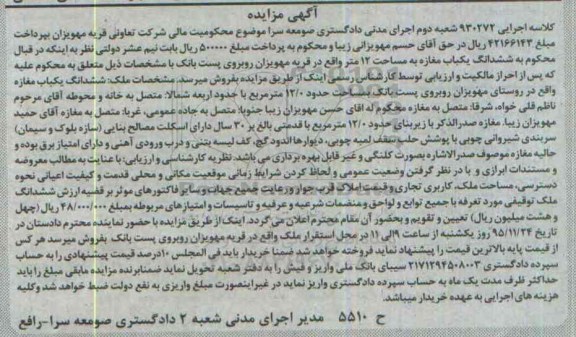 آگهی مزایده
کلاسه اجرایی ۹۳۰۲۷۲ شعبه دوم اجرای مدنی دادگستری صومعه سرا موضوع محکومیت مالی شرکت تعاونی قریه مهویزان بپرداخت
مبلغ ۴۲۱۶۶۱۴۳ ریال در حق آقای حسم مهویزانی زیبا و محکوم به پرداخت مبلغ ۵۰۰۰۰۰ ریال بابت نیم عشر دولتی نظر به اینکه در قبال
محکوم به ششدانگ یکباب مغازه به مساحت ۱۲ متر واقع در قریه مهویزان روبروی پست بانک با مشخصات ذیل متعلق به محکوم علیه
که پس از احراز مالکیت و ارزیابی توسط کارشناس رسمی اینک از طریق مزایده بفروش میرسد. مشخصات ملک: ششدانگ یکباب مغازه
واقع در روستای مهویزان روبروی پست بانک مساحت حدود ۱۲/۰ مترمربع با حدود اربعه شمالا: متصل به خانه و محوطه آقای مرحوم
ناظم قلی خواه، شرقا: متصل به مغازه محکوم له اقای حسن مهویزان زیبا جنوبا: متصل به جاده عمومی، غربا: متصل به مغازه آقای حمید
مهویزان زیبا. مغازه صدرالذکر با زیربنای حدود ۱۲/۰ مترمربع با قدمتی بالغ بر ۳۰ سال دارای اسکلت مصالح بنایی (سازه بلوک و سیمان)
سربندی شیروانی چوبی با پوشش حلب، سقف لمبه چوبی، دیوارها اندود گچ، کف لیسه بتنی و درب ورودی آهنی و دارای امتیاز برق بوده و
حالیه مغازه موصوف صدرالاشاره بصورت کلنگی و غیر قابل بهره برداری می باشد. نظریه کارشناسی و ارزیابی: با عنایت به مطالب معروضه
و مستندات ابرازی و با در نظر گرفتن وضعیت عمومی و لحاظ کردن شرایط زمانی موقعیت مکانی و محلی قدمت و کیفیت اعیانی نحوه
دسترسی، مساحت ملک، کاربری تجاری و قیمت املاک قرب جوار و رعایت جمیع جهات و سایر فاکتورهای موثر بر قضیه ارزش ششدانگ
ملک توقیفی مورد تعرفه با جمیع توابع و لواحق و منضمات شرعیه و عرفیه و تاسیسات و امتیازهای مربوطه بمبلغ ۴۸/۰۰۰/۰۰۰ ریال (چهل
و هشت میلیون ریال) تعیین و تقویم و بحضور آن مقام محترم اعلان می گردد. اینک از طریق مزایده با حضور نماینده محترم دادستان در
تاریخ ۹۵/۱۱/۲۴ روز یکشنبه از ساعت ۹ الی ۱۱ در محل استقرار ملک واقع در قریه مهویزان روبروی پست بانک بفروش میرسد هر کس
از قیمت پایه بالاترین قیمت را پیشنهاد نماید فروخته خواهد شد ضمنا خریدار باید فی المجلس ۱۰درصد قیمت پیشنهادی را به حساب
سپرده دادگستری ۲۱۷۱۲۹۴۵۰۸۰۰۳ سیبای بانک ملی واریز و فیش را به دفتر شعبه تحویل نماید ضمنا برنده مزایده مابقی مبلغ را باید
حداکثر ظرف مدت یک ماه به حساب سپرده دادگستری واریز نماید در غیر اینصورت مبلغ واریزی به نفع دولت ضبط خواهد شد وکلیه
هزینه های اجرایی به عهده خریدار میباشد.
ح ۵۵۱۰ مدیر اجرای مدنی شعبه ۲ دادگستری صومعه سرا-رافع